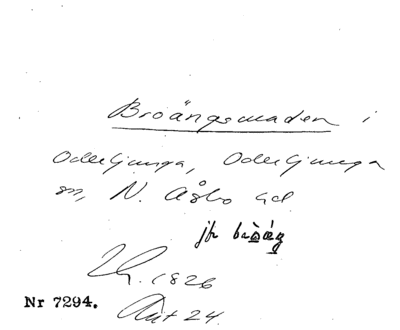 Broängsmaden i
Oderljunga, Oderljunga
sn, N. Åsbo hd
jfr
1826
Nr 7294.
Akt 24.